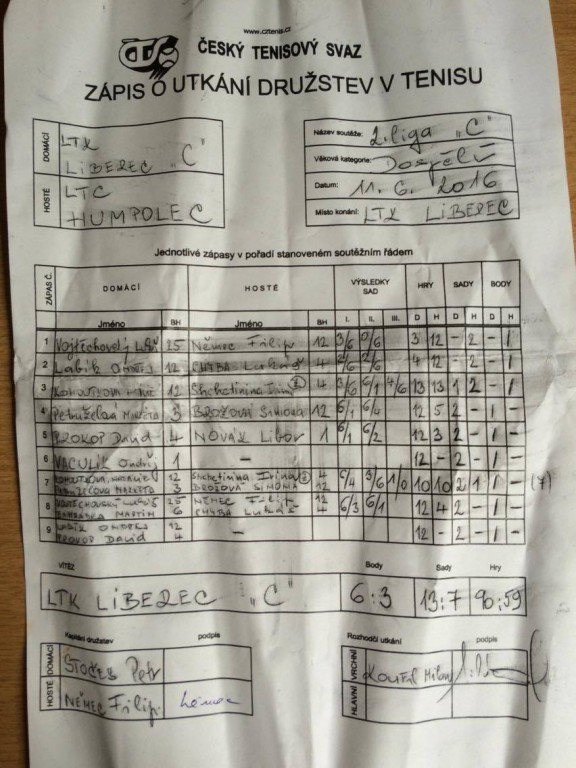 www.cztenis.cz
ČESKÝ TENISOVÝ SVAZ
ZÁPIS O UTKÁNÍ DRUŽSTEV V TENISU
DOMÁCÍ LTK LIBEREC "C"
HOSTÉ LTC HUMPOLEC
Název soutěže: 2. liga "C"
Věková kategorie: Dospělí
Datum: 11. 6. 2016
Místo konání: LTK LIBEREC
Jednotlivé zápasy v pořadí stanoveném soutěžním řádem
ZÁPAS Č. DOMÁCÍ HOSTÉ VÝSLEDKY SAD HRY SADY BODY
Jméno BH Jméno BH I. II. III. D H D H D H
1 25 Němec Filip 12 3/6 0/6 3 12 - 2 - 1
2 Labík 12 CHYBA Lukáš 4 2/6 2/6 4 12 - 2 - 1
3 12 Shchetinina 4 3/6 6/1 4/6 13 13 1 2 - 1
4 Petruželová MARKÉTA 3 BROŽOVÁ SIMONA 12 6/1 6/4 12 5 2 - 1 -
5 PROKOP David 4 NOVÁK Libor 1 6/1 6/2 12 3 2 - 1 -
6 VACULÍK Ondřej 1 - 12 - 2 - 1 -
7 12 Shchetinina Irina 4 6/4 3/6 1/0 10 10 2 1 1 - (7)
MARKÉTA 3 BROŽOVÁ SIMONA 12
8 25 NĚMEC Filip 12 6/3 6/1 12 4 2 - 1 -
MARTIN 6 CHYBA Lukáš 4
9 LABÍK ONDŘEJ 12 - 12 - 2 - 1 -
PROKOP David 4
VÍTĚZ Body Sady Hry
LTK LIBEREC "C" 6:3 13:7 90:59
Kapitáni družstev podpis
DOMÁCÍ ŠTOČES Petr
HOSTÉ NĚMEC Filip Němec
Rozhodčí utkání podpis
VRCHNÍ Milan
HLAVNÍ